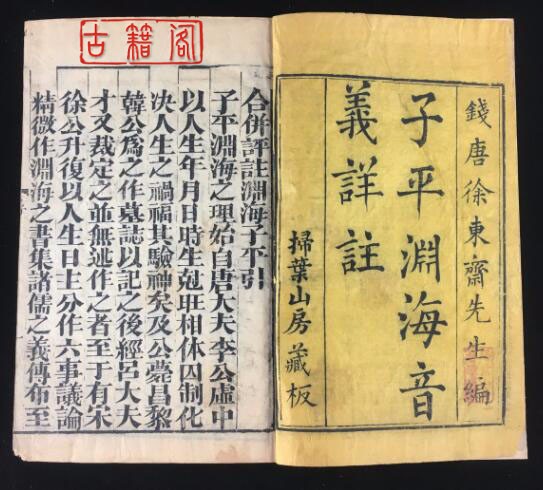 古籍阁
錢唐徐東齋先生編
子平淵海音
義詳註
掃葉山房藏板
合併評註淵海子平引
子平淵海之理始自唐大夫李公虛中
以人生年月日時生尅旺相体囚制化
决人生之禍福其驗神矣及公薨昌黎
韓公爲之作墓誌以記之後經呂大夫
才又裁定之並無述作之者至于有宋
徐公升復以人生日主分作六事議論
精微作淵海之書集諸儒之義傳布至